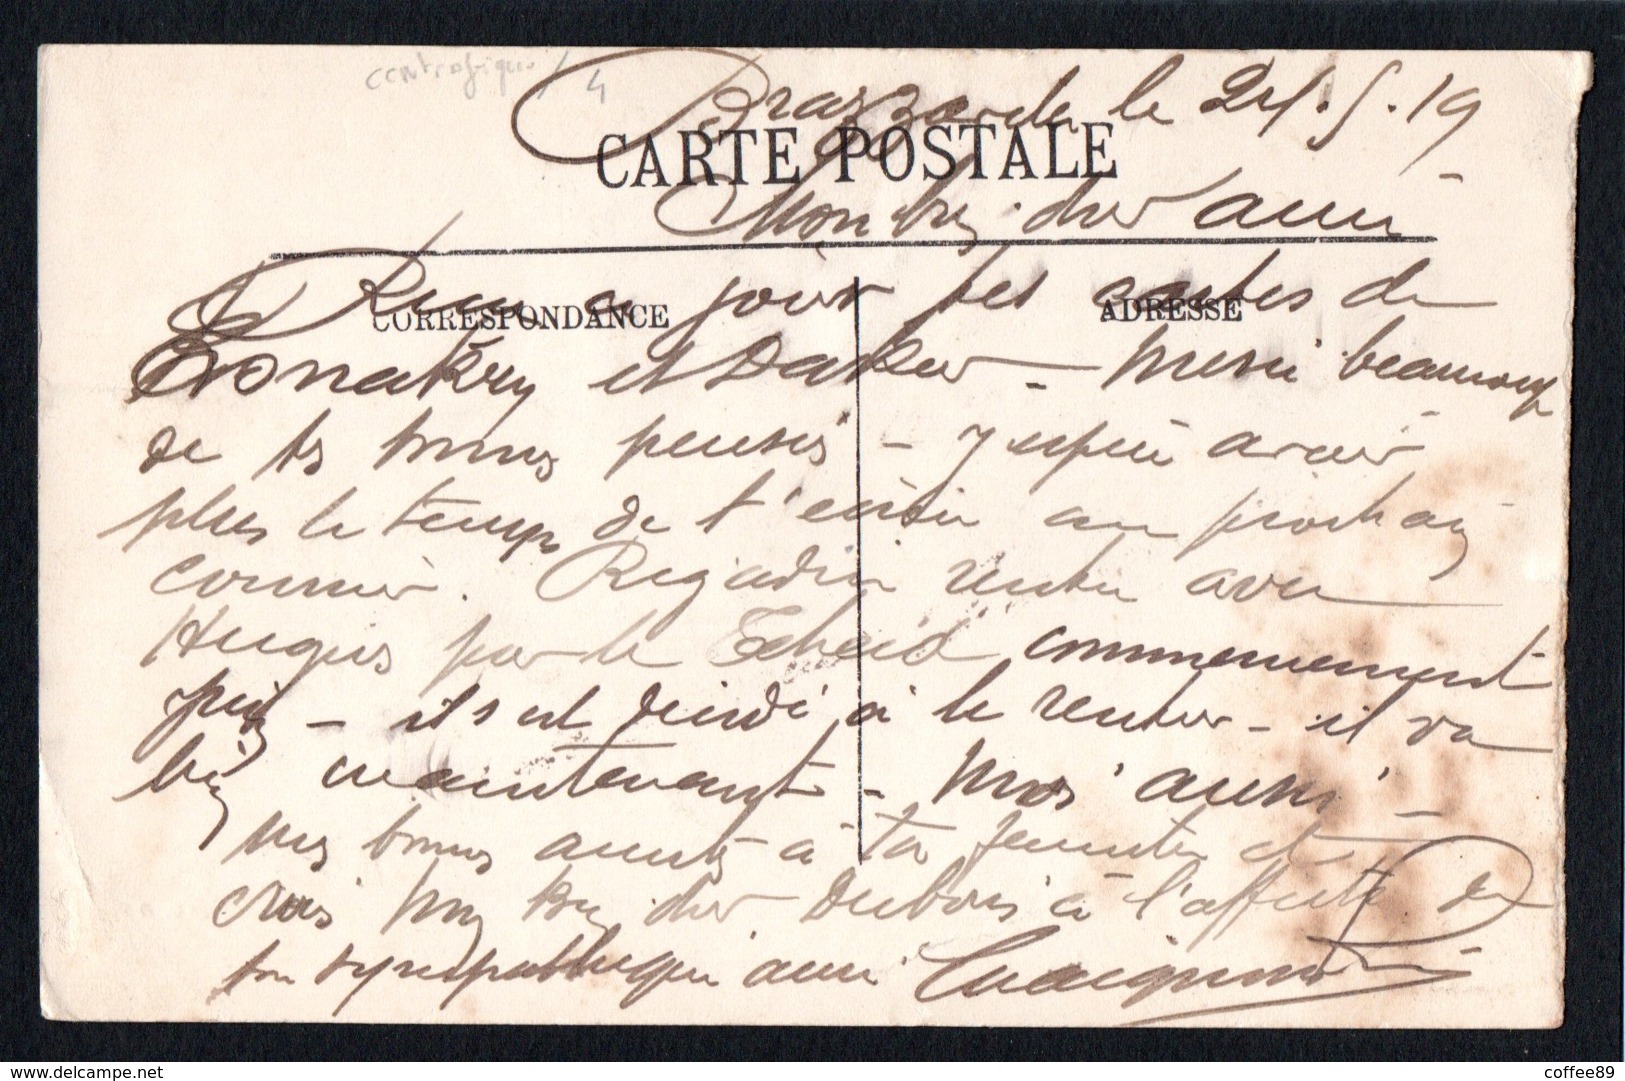 centrafrique / 4
Brazzaville le 24.5.19
CARTE POSTALE
Mon bien cher ami
CORRESPONDANCE
ADRESSE
Reçu ce jour tes cartes de
Konakry et Dakar - Merci beaucoup
de tes bonnes pensées - J'espère avoir
plus le temps de t'écrire au prochain
courrier. Regadin rentre avec
Hugues par le commencement
juin - il s'est décidé à le rentrer - il va
bien maintenant - Moi aussi -
Mes bonnes amitiés à ta famille et
crois mon bien cher Dubois à l'affection de
ton sympathique ami
delcampe.net
coffee89